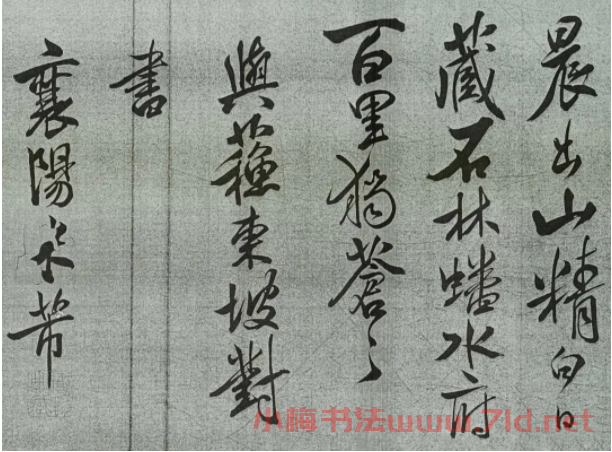 晨出山精白日
藏石林蟠水府
百里獨蒼々
與蘓東坡對
書
襄陽米芾
小梅书法www.7ld.net